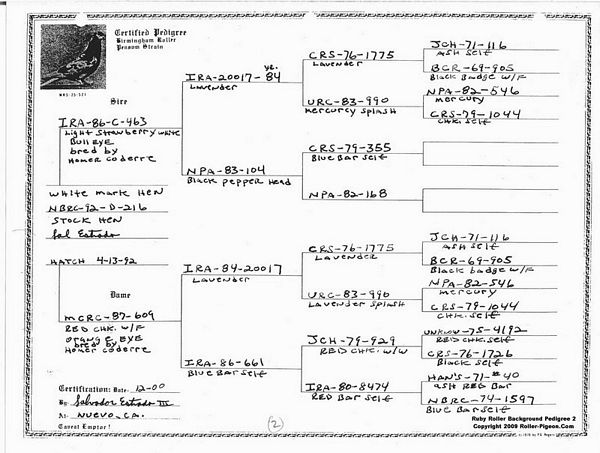 Certified Pedigree
Birmingham Roller
Pensom Strain
NRS-35-521
Sire
IRA-86-C-463
Light Strawberry white
Bull EYE
bred by
Homer Coderre
White mark Hen
NBRC-92-D-216
Stock Hen
Sal Estrada
HATCH 4-13-92
Dame
MCRC-87-609
RED CHK. W/F
orange EYE
bred by
Homer Coderre
Certification: Date: 12-00
By: Salvador Estrada III
At: NUEVO, CA.
Caveat Emptor!
yr.
IRA-20017-84
Lavender
NPA-83-104
Black pepper Head
IRA-84-20017
Lavender
IRA-86-661
Blue Bar Self
CRS-76-1775
Lavender
URC-83-990
Mercury Splash
CRS-79-355
Blue Bar Self
NPA-82-168
CRS-76-1775
Lavender
URC-83-990
Lavender Splash
JCH-79-929
RED CHK. W/W
IRA-80-8474
RED Bar Self
JCH-71-116
Ash Self
BCR-69-905
Black Badge W/F
NPA-82-546
Mercury
CRS-79-1044
CHK. Self
JCH-71-116
Ash Self
BCR-69-905
Black badge W/F
NPA-82-546
Mercury
CRS-79-1044
CHK. Self
UNKLOW-75-4192
RED CHK. Self
CRS-76-1726
Black Self
HAN'S-71-#40
ash RED Bar
NBRC-74-1597
Blue Bar Self
(2)
Ruby Roller Background Pedigree 2
Copyright 2009 Roller-Pigeon.Com